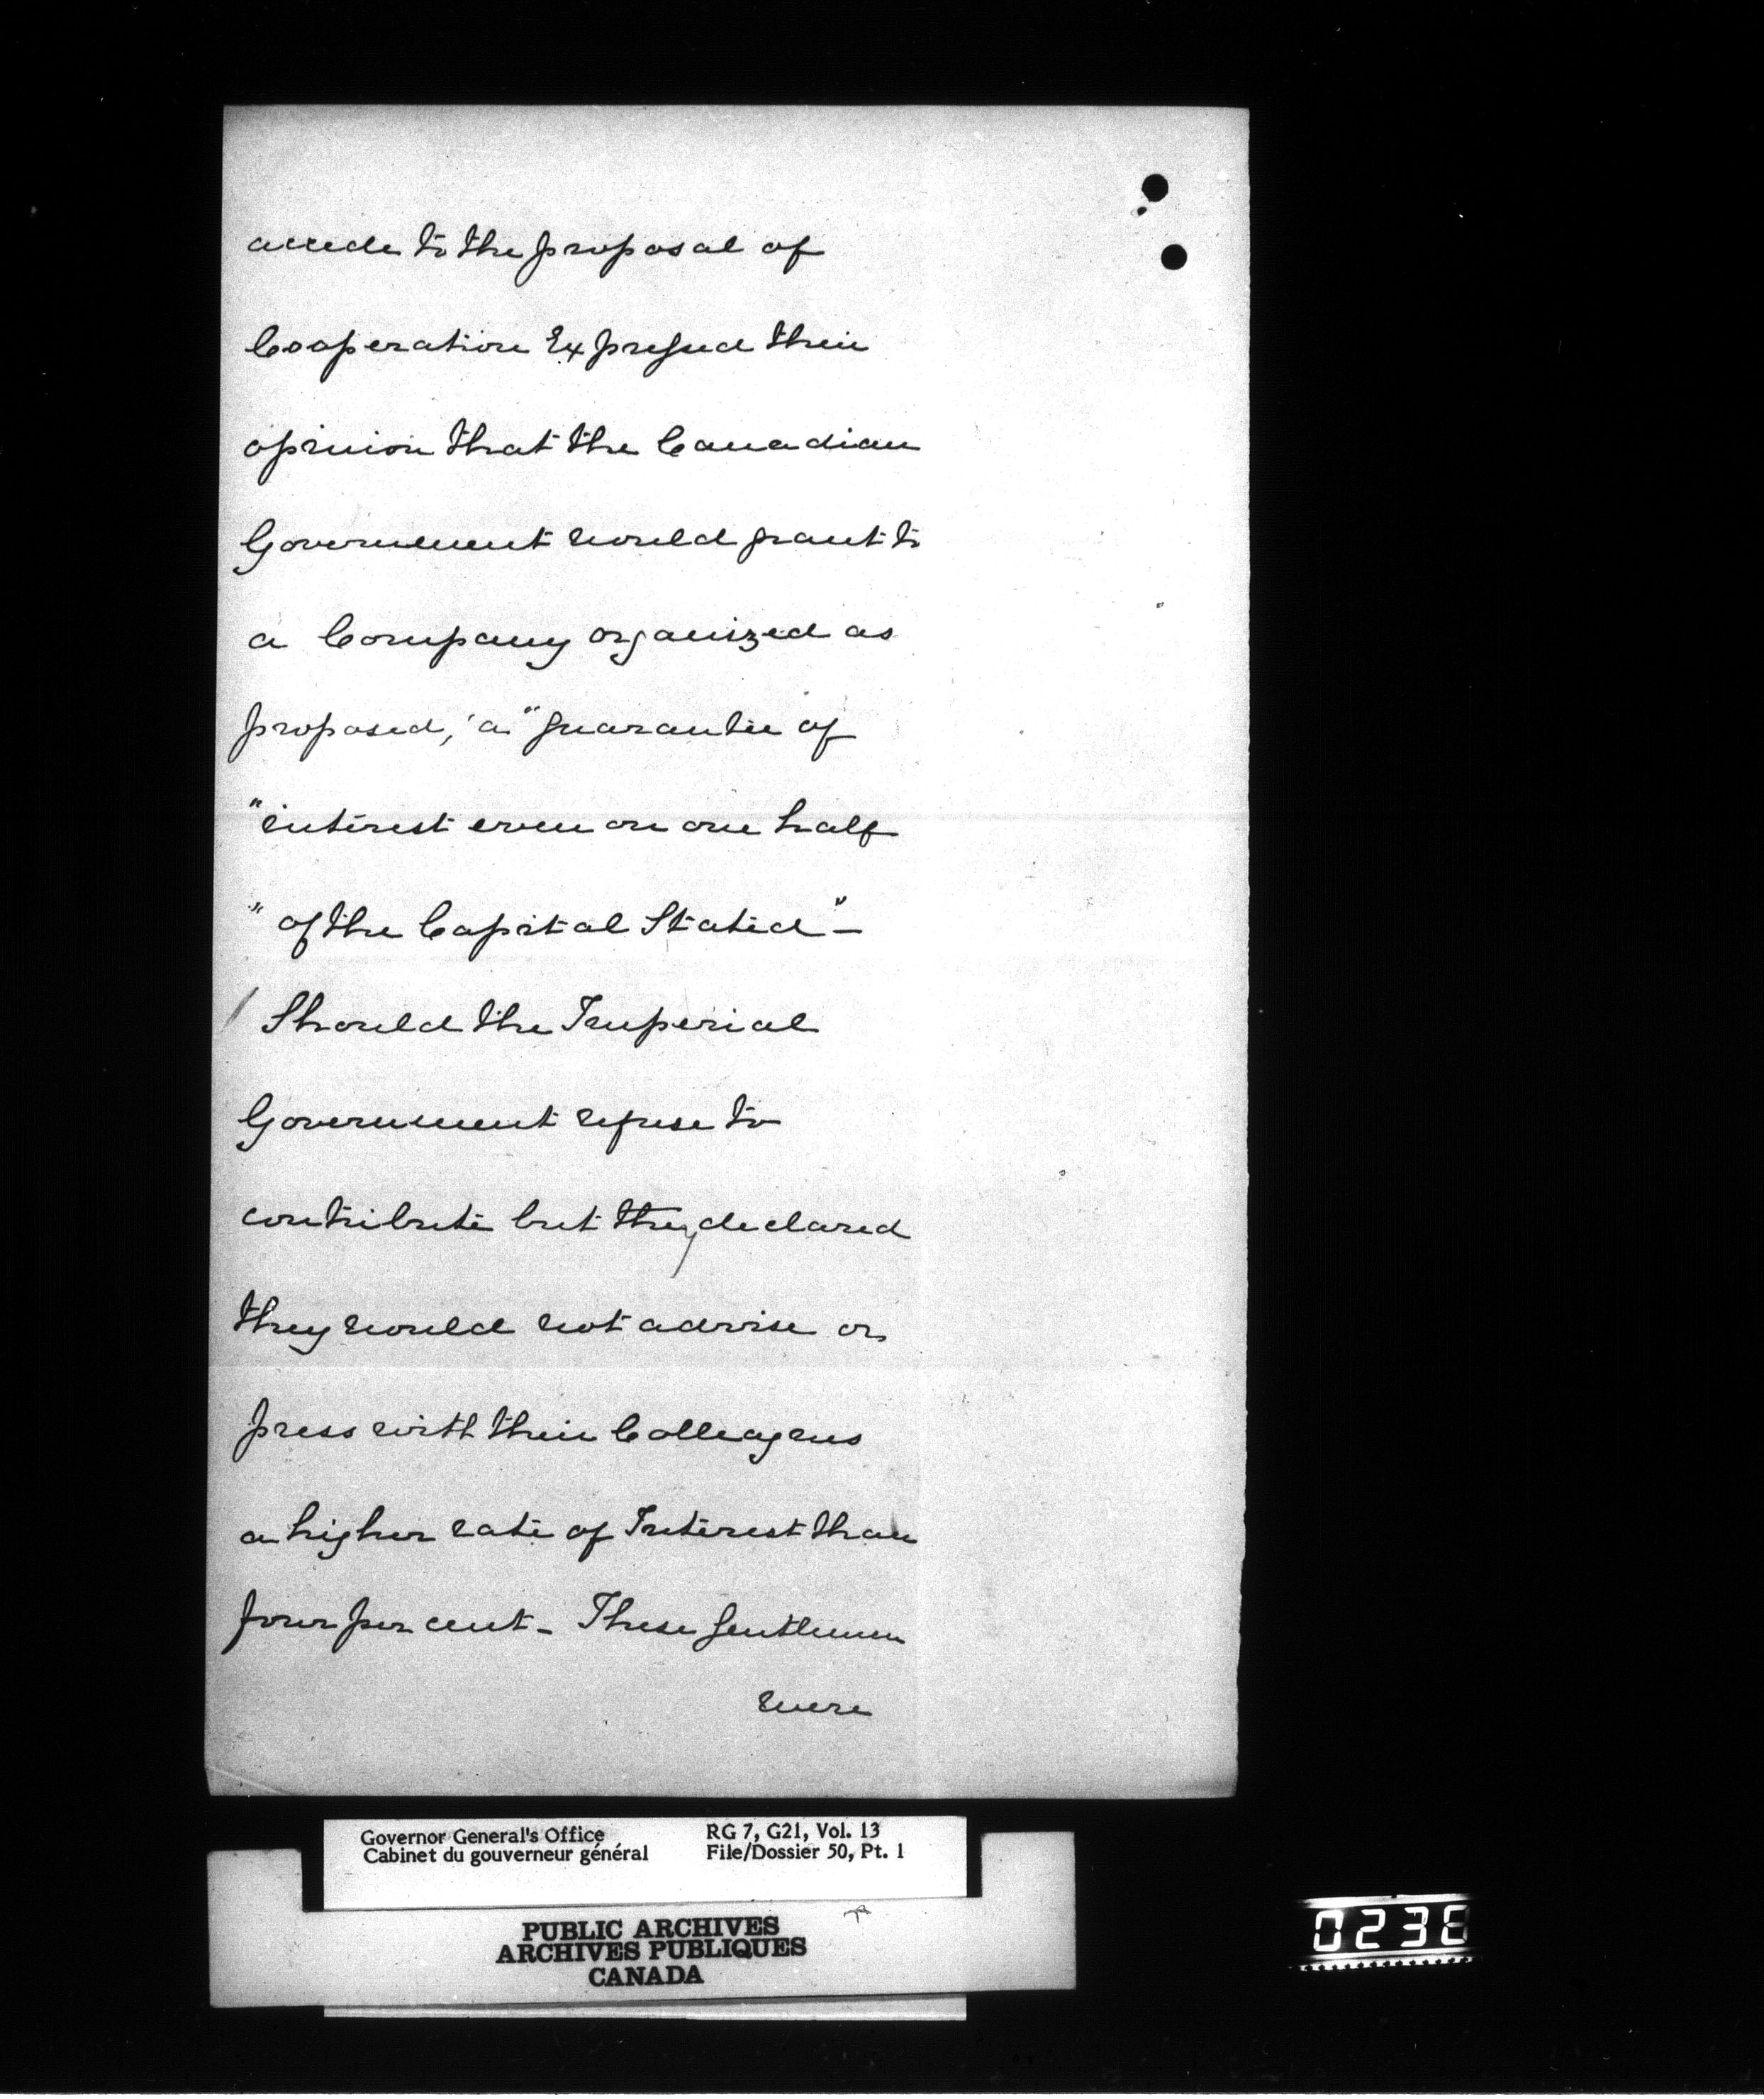 accede to the proposal of
Cooperation Expressed their
opinion that the Canadian
Government would grant to
a Company organized as
proposed, 'a "guarantee of
"interest even on one half
" of the Capital Stated" -
/ Should the Imperial
Government refuse to
contribute but they declared
they would not advise or
press with their Colleagues
a higher rate of Interest than
four per cent - These Gentlemen
were
Governor General's Office
Cabinet du gouverneur général
RG 7, G21, Vol. 13
File/Dossier 50, Pt. 1
PUBLIC ARCHIVES
ARCHIVES PUBLIQUES
CANADA